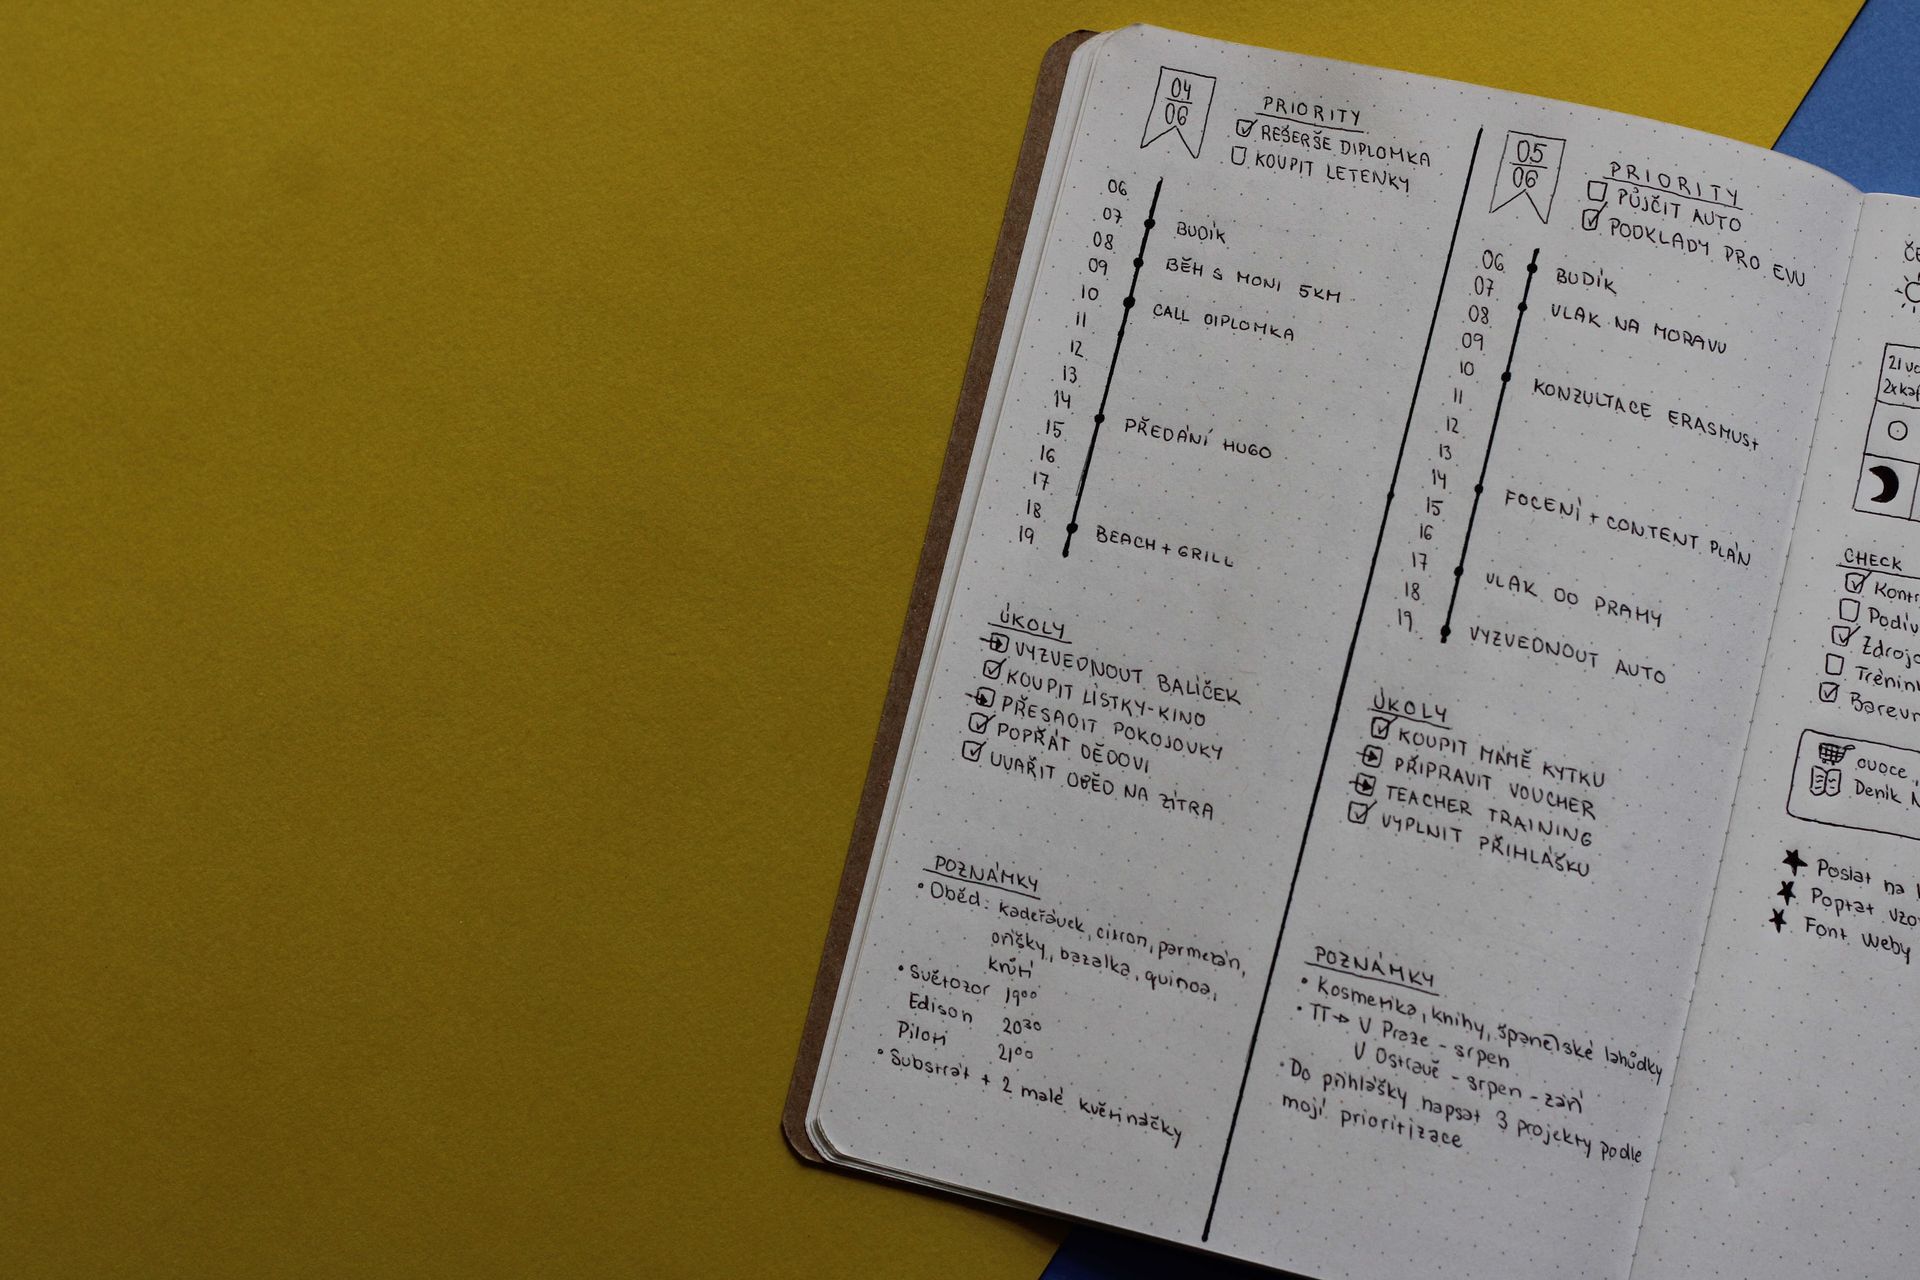 04
06
PRIORITY
REŠERŠE DIPLOMKA
KOUPIT LETENKY
06
07 BUDÍK
08
09 BĚH S MONI 5KM
10 CALL DIPLOMKA
11
12
13
14
15 PŘEDÁNÍ HUGO
16
17
18
19 BEACH + GRILL
ÚKOLY
VYZVEDNOUT BALÍČEK
KOUPIT LÍSTKY-KINO
PŘESADIT POKOJOVKY
POPŘÁT DĚDOVI
UVAŘIT OBĚD NA ZÍTRA
POZNÁMKY
• Oběd: kadeřávek, citron, parmezán,
oříšky, bazalka, quinoa,
krůtí
• Světozor 19⁰⁰
Edison 20³⁰
Piloti 21⁰⁰
• Substrát + 2 malé květináčky
05
06
PRIORITY
PŮJČIT AUTO
PODKLADY PRO EVU
06 BUDÍK
07
08 VLAK NA MORAVU
09
10
11 KONZULTACE ERASMUS+
12
13
14
15 FOCENÍ + CONTENT PLÁN
16
17
18 VLAK DO PRAHY
19 VYZVEDNOUT AUTO
ÚKOLY
KOUPIT MÁMĚ KYTKU
PŘIPRAVIT VOUCHER
TEACHER TRAINING
VYPLNIT PŘIHLÁŠKU
POZNÁMKY
• Kosmetika, knihy, španělské lahůdky
• TT → V Praze - srpen
V Ostravě - srpen - září
• Do přihlášky napsat 3 projekty podle
mojí prioritizace
CHECK
ovoce,
Deník
Poslat na
Poptat
Font weby